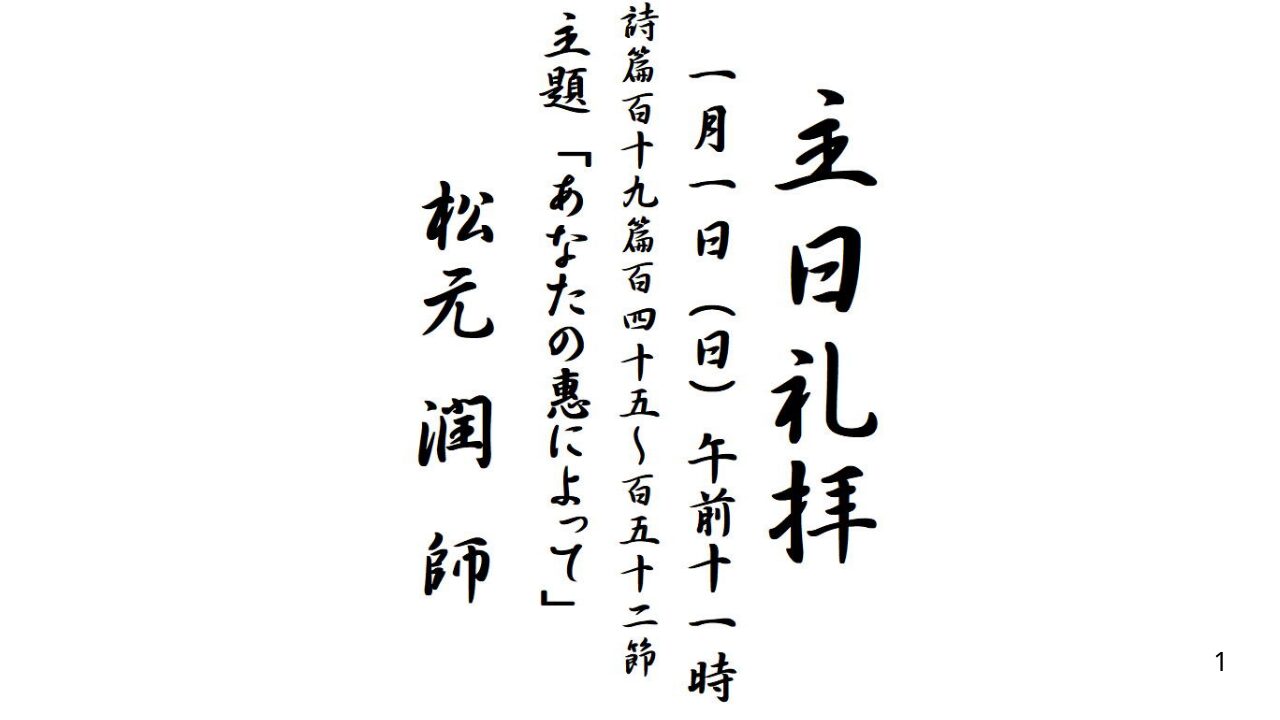 主日礼拝
一月一日（日）午前十一時
詩篇百十九篇百四十五～百五十二節
主題「あなたの恵によって」
松元 潤 師
1